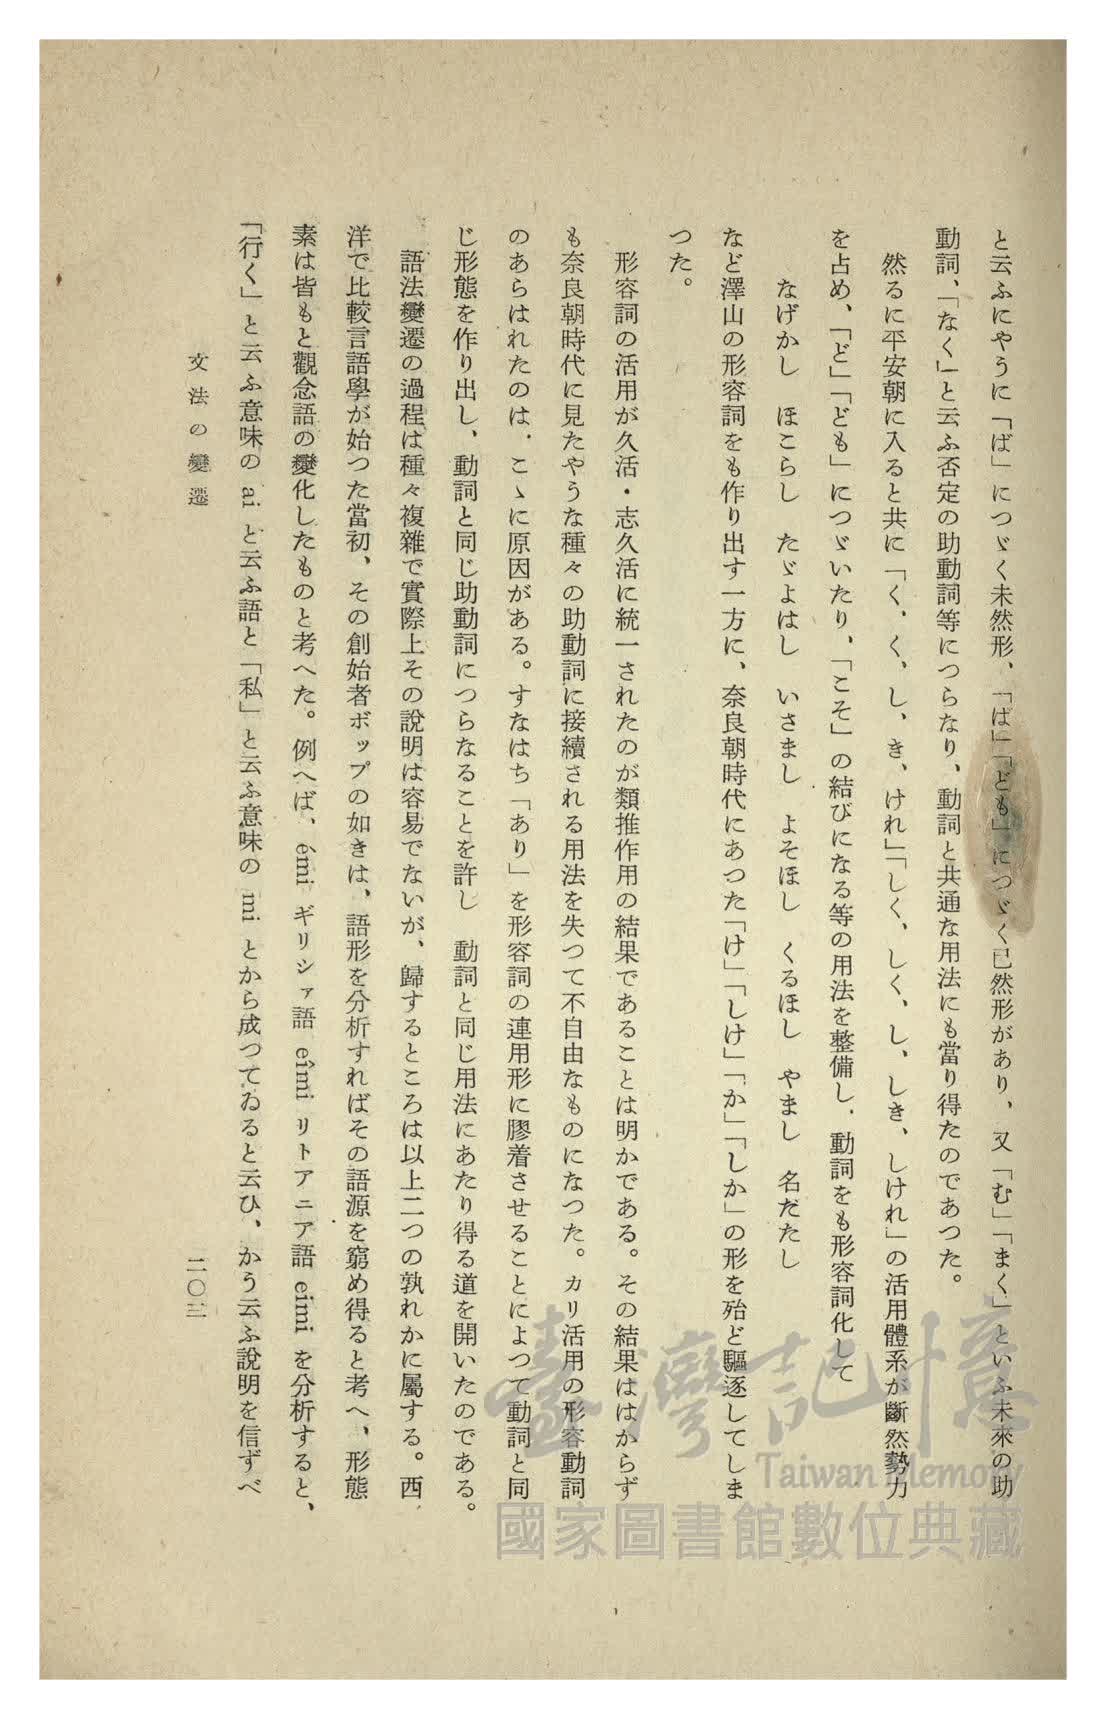 と云ふにやうに「ば」につゞく未然形、「ば」「ども」につゞく已然形があり、又「む」「まく」といふ未來の助
動詞、「なく」と云ふ否定の助動詞等につらなり、動詞と共通な用法にも當り得たのであつた。
然るに平安朝に入ると共に「く、く、し、き、けれ」「しく、しく、し、しき、しけれ」の活用體系が斷然勢力
を占め、「ど」「ども」につゞいたり、「こそ」の結びになる等の用法を整備し、動詞をも形容詞化して
なげかし　ほこらし　たゞよはし　いさまし　よそほし　くるほし　やまし　名だたし
など澤山の形容詞をも作り出す一方に、奈良朝時代にあつた「け」「しけ」「か」「しか」の形を殆ど驅逐してしま
つた。
形容詞の活用が久活・志久活に統一されたのが類推作用の結果であることは明かである。その結果ははからず
も奈良朝時代に見たやうな種々の助動詞に接續される用法を失つて不自由なものになつた。カリ活用の形容動詞
のあらはれたのは、こゝに原因がある。すなはち「あり」を形容詞の連用形に膠着させることによつて動詞と同
じ形態を作り出し、動詞と同じ助動詞につらなることを許し　動詞と同じ用法にあたり得る道を開いたのである。
語法變遷の過程は種々複雜で實際上その說明は容易でないが、歸するところは以上二つの孰れかに屬する。西
洋で比較言語學が始つた當初、その創始者ボップの如きは、語形を分析すればその語源を窮め得ると考へ、形態
素は皆もと觀念語の變化したものと考へた。例へば、émi ギリシァ語 eîmi リトアニア語 eimi を分析すると、
「行く」と云ふ意味の ai と云ふ語と「私」と云ふ意味の mi とから成つてゐると云ひ、かう云ふ說明を信ずべ
文法の變遷
二〇三
臺灣記憶
Taiwan Memory
國家圖書館數位典藏